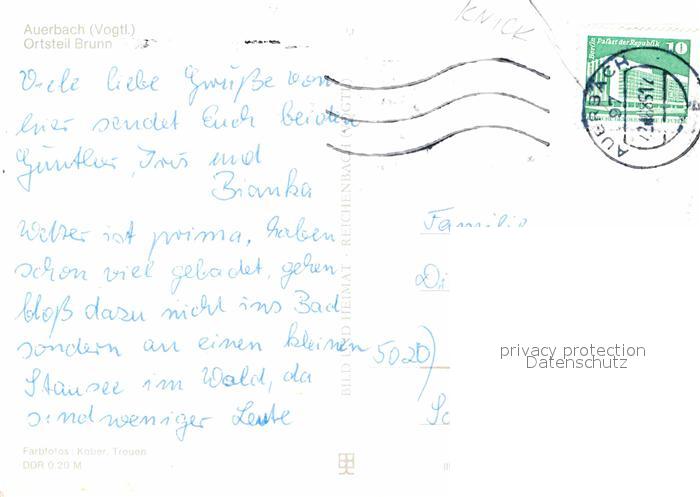 Auerbach (Vogtl.)
Ortsteil Brunn
KNICK
Berlin Palast der Republik 10
AUERBACH
97
Viele liebe Grüße von
hier sendet Euch beiden
Günther, Iris und
Bianka
Wetter ist prima, haben
schon viel gebadet, gehen
bloß dazu nicht ins Bad
sondern an einen kleinen
Stausee im Wald, da
sind weniger Leute
BILD UND HEIMAT · REICHENBACH
Familie
Di
5020)
privacy protection
Datenschutz
Farbfotos: Kober, Treuen
DDR 0.20 M